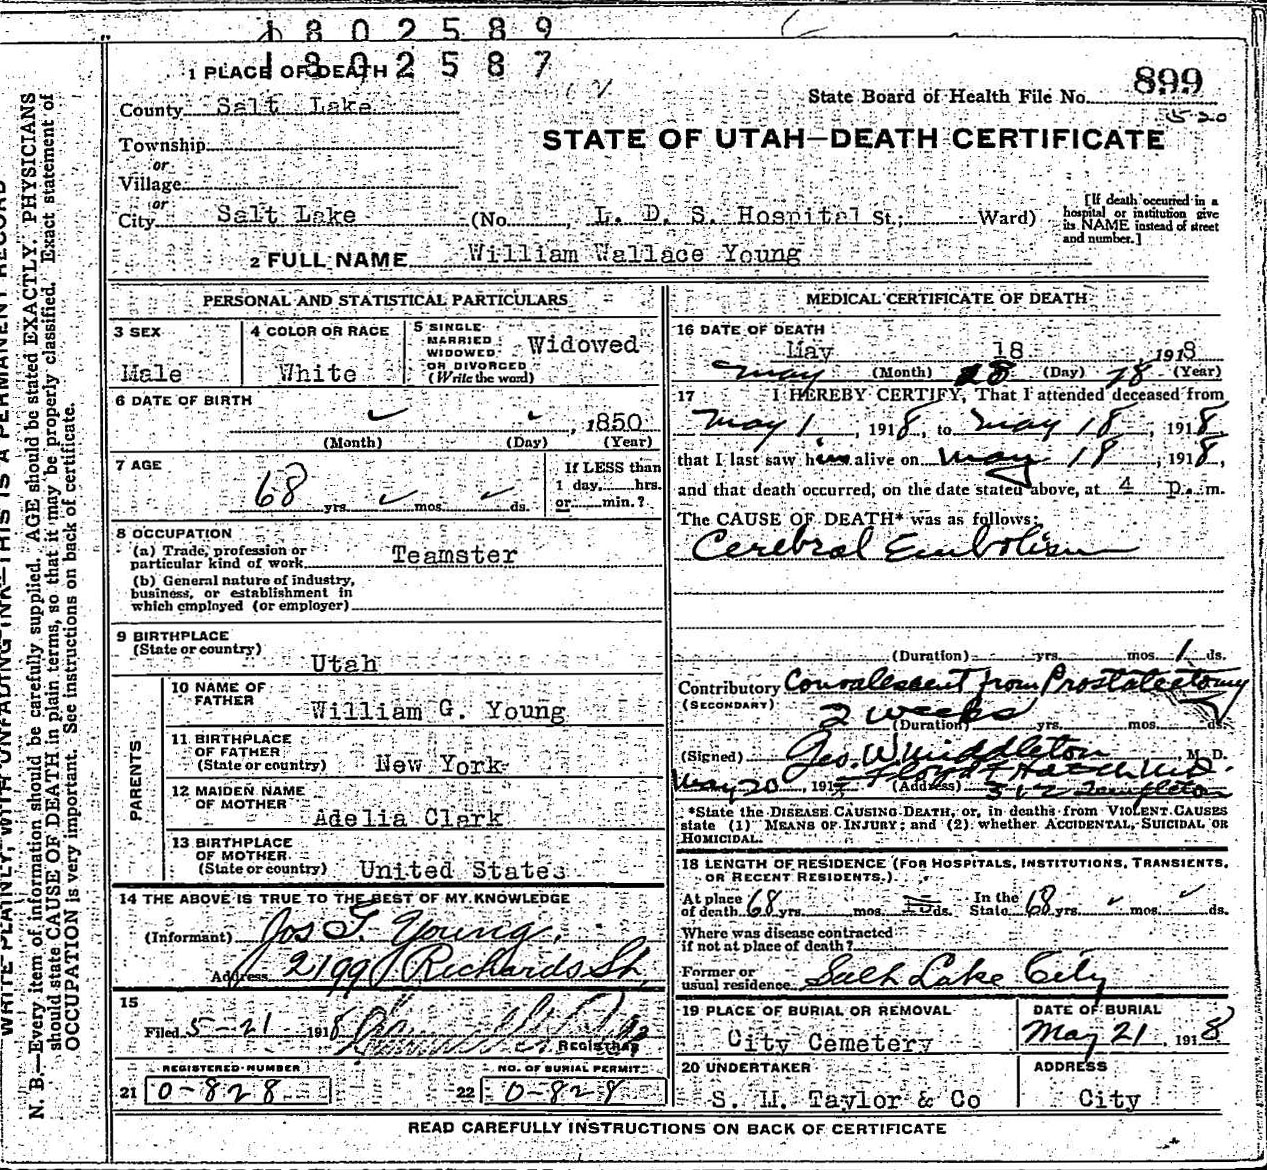 1802589
1802587
1 PLACE OF DEATH
899
County Salt Lake
State Board of Health File No.
Township
STATE OF UTAH—DEATH CERTIFICATE
or
Village
or
City Salt Lake (No. L. D. S. Hospital St.; Ward)
[If death occurred in a hospital or institution give its NAME instead of street and number.]
2 FULL NAME William Wallace Young
PERSONAL AND STATISTICAL PARTICULARS
3 SEX Male
4 COLOR OR RACE White
5 SINGLE MARRIED WIDOWED OR DIVORCED (Write the word) Widowed
6 DATE OF BIRTH
, 1850
(Month) (Day) (Year)
7 AGE
68 yrs. mos. ds.
If LESS than 1 day, hrs. or min.?
8 OCCUPATION
(a) Trade, profession or particular kind of work Teamster
(b) General nature of industry, business, or establishment in which employed (or employer)
9 BIRTHPLACE
(State or country) Utah
PARENTS
10 NAME OF FATHER William G. Young
11 BIRTHPLACE OF FATHER (State or country) New York
12 MAIDEN NAME OF MOTHER Adelia Clark
13 BIRTHPLACE OF MOTHER (State or country) United States
14 THE ABOVE IS TRUE TO THE BEST OF MY KNOWLEDGE
(Informant) Jos G. Young
Address 2199 Richards St.
15
Filed 5-21 1918
REGISTRAR
REGISTERED NUMBER
21 0-828
NO. OF BURIAL PERMIT
22 0-828
MEDICAL CERTIFICATE OF DEATH
16 DATE OF DEATH
May 18 1918
May (Month) 28 (Day) 18 (Year)
17 I HEREBY CERTIFY, That I attended deceased from
May 1, 1918, to May 18, 1918
that I last saw him alive on May 18, 1918,
and that death occurred, on the date stated above, at 4 p.m.
The CAUSE OF DEATH* was as follows:
Cerebral Embolism
(Duration) yrs. mos. 1 ds.
Contributory Convalescent from Prostatectomy
(SECONDARY)
2 weeks
(Duration) yrs. mos. ds.
(Signed) Geo. W Middleton M. D.
Floyd F Hatch M.D.
May 20, 191 (Address) 512 Templeton
*State the DISEASE CAUSING DEATH, or, in deaths from VIOLENT CAUSES state (1) MEANS OF INJURY; and (2) whether ACCIDENTAL, SUICIDAL OR HOMICIDAL.
18 LENGTH OF RESIDENCE (FOR HOSPITALS, INSTITUTIONS, TRANSIENTS, OR RECENT RESIDENTS.)
At place of death 68 yrs. mos. ds. In the State 68 yrs. mos. ds.
Where was disease contracted if not at place of death?
Former or usual residence Salt Lake City
19 PLACE OF BURIAL OR REMOVAL
City Cemetery
DATE OF BURIAL
May 21, 1918
20 UNDERTAKER
S. M. Taylor & Co
ADDRESS
City
READ CAREFULLY INSTRUCTIONS ON BACK OF CERTIFICATE
WRITE PLAINLY, WITH UNFADING INK—THIS IS A PERMANENT RECORD
N. B.—Every item of information should be carefully supplied. AGE should be stated EXACTLY. PHYSICIANS
should state CAUSE OF DEATH in plain terms, so that it may be properly classified. Exact statement of
OCCUPATION is very important. See instructions on back of certificate.